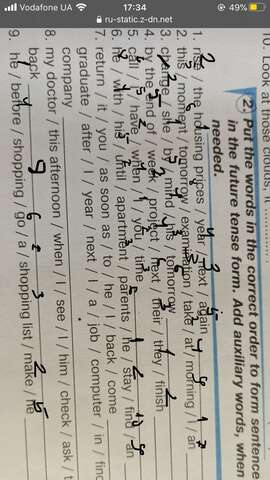 Vodafone UA 17:34 49%
ru-static.z-dn.net
10. Look at those goods, it
2 Put the words in the correct order to form sentence
in the future tense form. Add auxiliary words, when
needed.
1. rise / the housing prices / year / next / again
2. this / moment / tomorrow / examination / take / at / morning / I / an
3. change / she / by / mind / his / tomorrow
4. by the end of / week / project / next / their / they / finish
5. call / have / when / I / you / time
6. he / with / his / until / apartment / parents / he / stay / find / an
7. return / it / you / as soon as / to / he / I / back / come
graduate / after / I / year / next / I / a / job / computer / in / find
company
8. my doctor / this afternoon / when / I / see / I / him / check / ask / t
back
9. he / before / shopping / go / a / shopping list / make / he